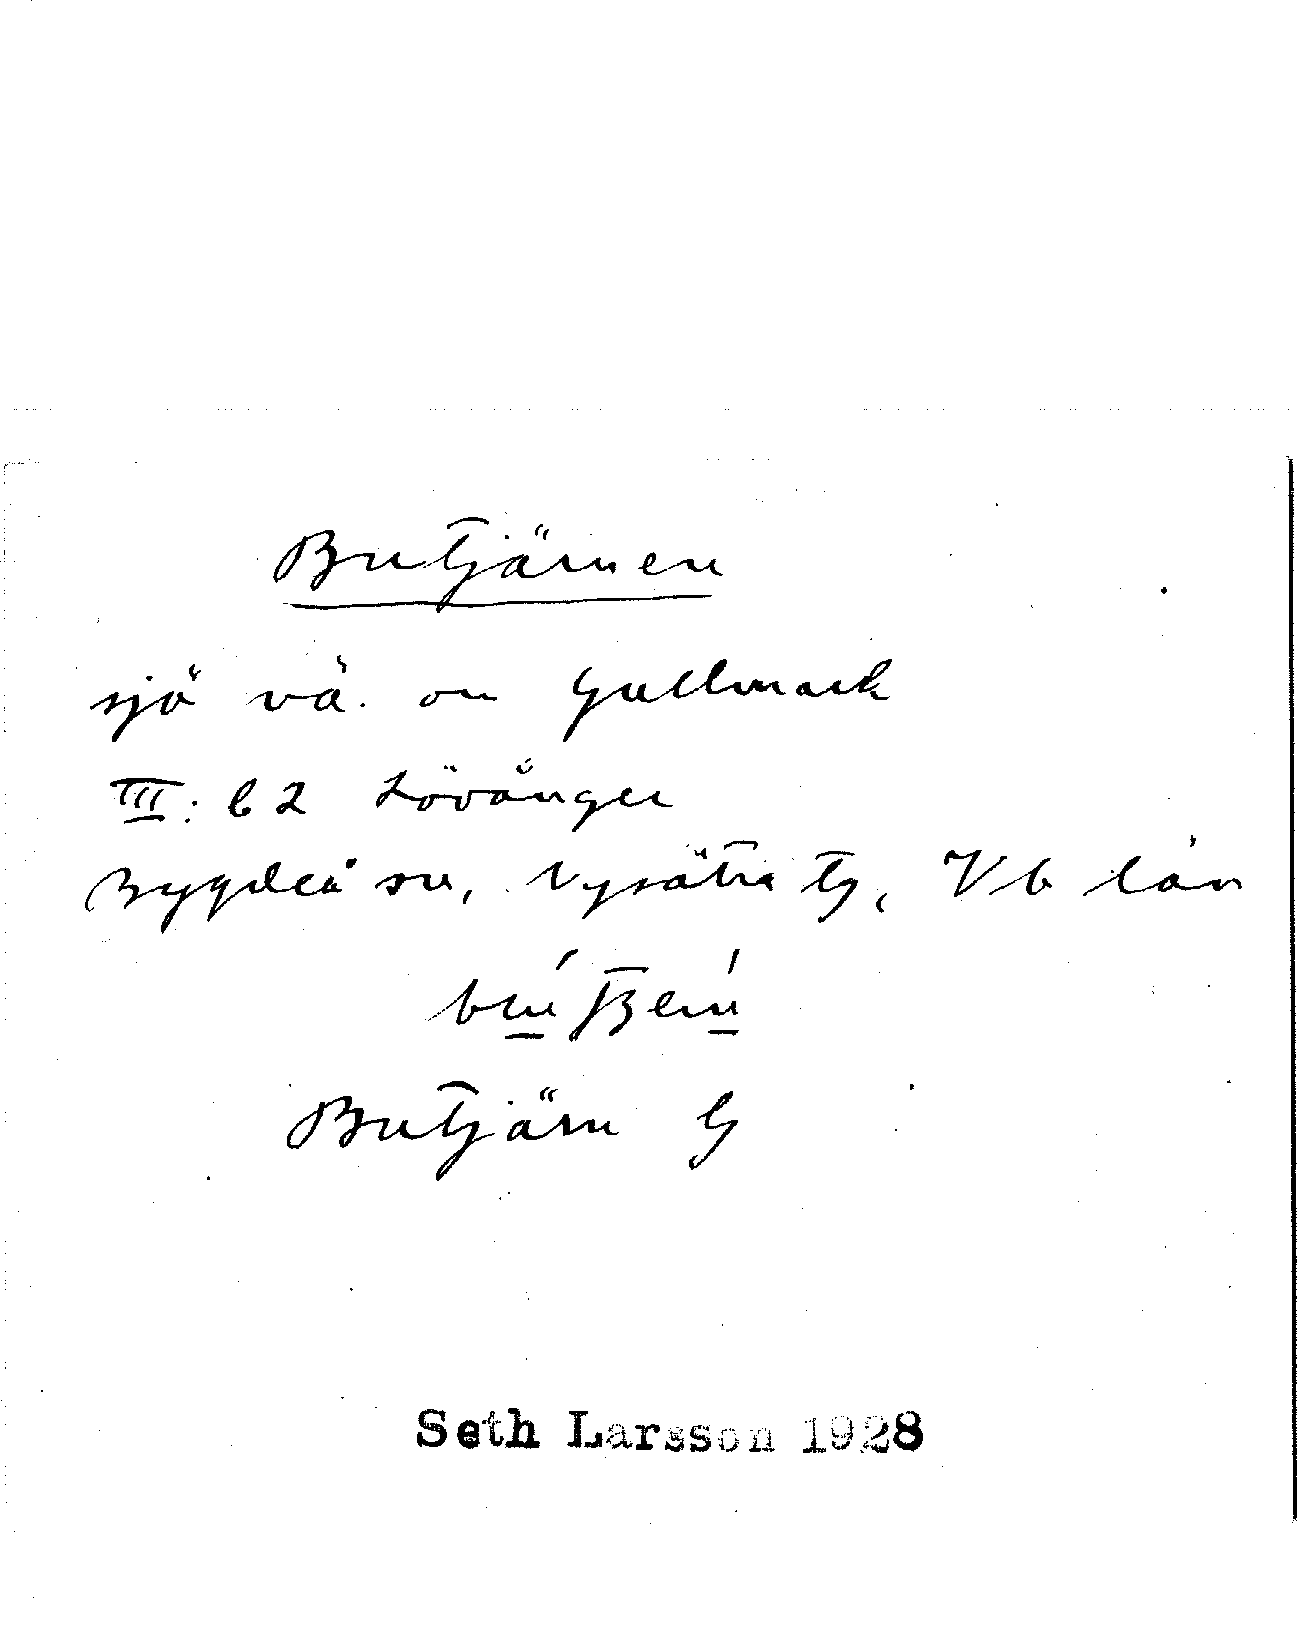 Butjärnen
sjö vä. om Gullmark
III: b2 Lövånger
Bygdeå sn, Nysätra tg, Vb län
Butjärn G
Seth Larsson 1928